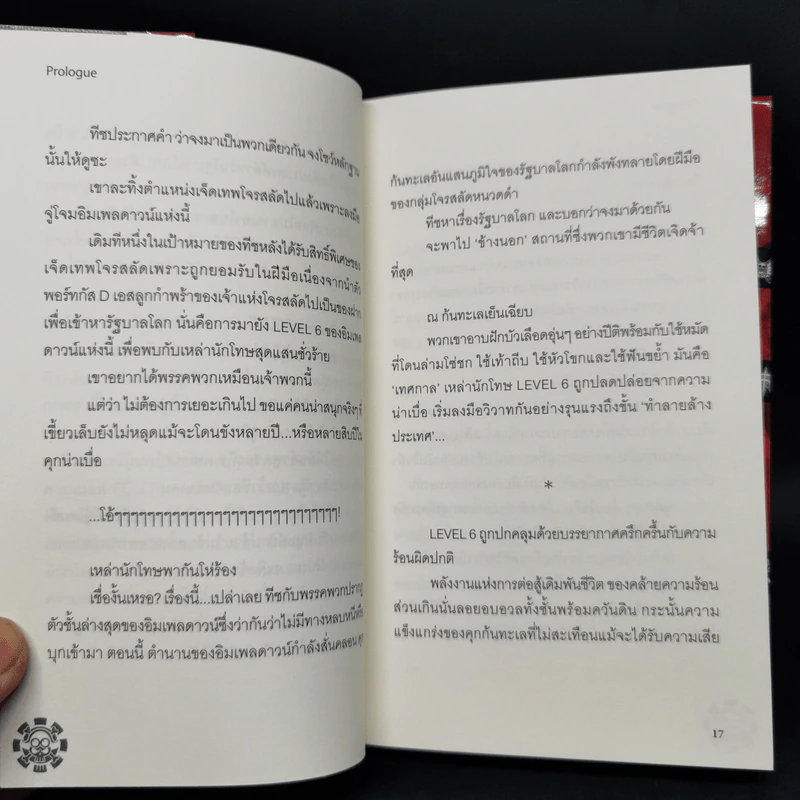 Prologue
ทีชประกาศคำ ว่าจงมาเป็นพวกเดียวกัน จงโชว์หลักฐาน
นั้นให้ดูซะ
เขาละทิ้งตำแหน่งเจ็ดเทพโจรสลัดไปแล้วเพราะลงมือ
จู่โจมอิมเพลดาวน์แห่งนี้
เดิมทีหนึ่งในเป้าหมายของทีชหลังได้รับสิทธิ์พิเศษของ
เจ็ดเทพโจรสลัดเพราะถูกยอมรับในฝีมือเนื่องจากนำตัว
พอร์ทกัส D เอสลูกกำพร้าของเจ้าแห่งโจรสลัดไปเป็นของฝาก
เพื่อเข้าหารัฐบาลโลก นั่นคือการมายัง LEVEL 6 ของอิมเพล
ดาวน์แห่งนี้ เพื่อพบกับเหล่านักโทษสุดแสนชั่วร้าย
เขาอยากได้พรรคพวกเหมือนเจ้าพวกนี้
แต่ว่า ไม่ต้องการเยอะเกินไป ขอแค่คนน่าสนุกจริงๆ ที่
เขี้ยวเล็บยังไม่หลุดแม้จะโดนขังหลายปี...หรือหลายสิบปีใน
คุกน่าเบื่อ
...โอ้ๆๆๆๆๆๆๆๆๆๆๆๆๆๆๆๆๆๆๆๆๆๆๆๆๆๆๆ!
เหล่านักโทษพากันโห่ร้อง
เชื่องั้นเหรอ? เรื่องนี้...เปล่าเลย ทีชกับพรรคพวกปรากฏ
ตัวชั้นล่างสุดของอิมเพลดาวน์ซึ่งว่ากันว่าไม่มีทางหลบหนีหรือ
บุกเข้ามา ตอนนี้ ตำนานของอิมเพลดาวน์กำลังสั่นคลอน คุก
ก้นทะเลอันแสนภูมิใจของรัฐบาลโลกกำลังพังทลายโดยฝีมือ
ของกลุ่มโจรสลัดหนวดดำ
ทีชหาเรื่องรัฐบาลโลก และบอกว่าจงมาด้วยกัน
จะพาไป ‘ข้างนอก’ สถานที่ซึ่งพวกเขามีชีวิตเจิดจ้า
ที่สุด
ณ ก้นทะเลเย็นเฉียบ
พวกเขาอาบฝักบัวเลือดอุ่นๆ อย่างปีติพร้อมกับใช้หมัด
ที่โดนล่ามโซ่ชก ใช้เท้าถีบ ใช้หัวโขกและใช้ฟันขย้ำ มันคือ
‘เทศกาล’ เหล่านักโทษ LEVEL 6 ถูกปลดปล่อยจากความ
น่าเบื่อ เริ่มลงมือวิวาทกันอย่างรุนแรงถึงขั้น ‘ทำลายล้าง
ประเทศ’...
*
LEVEL 6 ถูกปกคลุมด้วยบรรยากาศครึกครื้นกับความ
ร้อนผิดปกติ
พลังงานแห่งการต่อสู้เดิมพันชีวิต ของคล้ายความร้อน
ส่วนเกินนั่นลอยอบอวลทั้งชั้นพร้อมควันดิน กระนั้นความ
แข็งแกร่งของคุกก้นทะเลที่ไม่สะเทือนแม้จะได้รับความเสีย
17